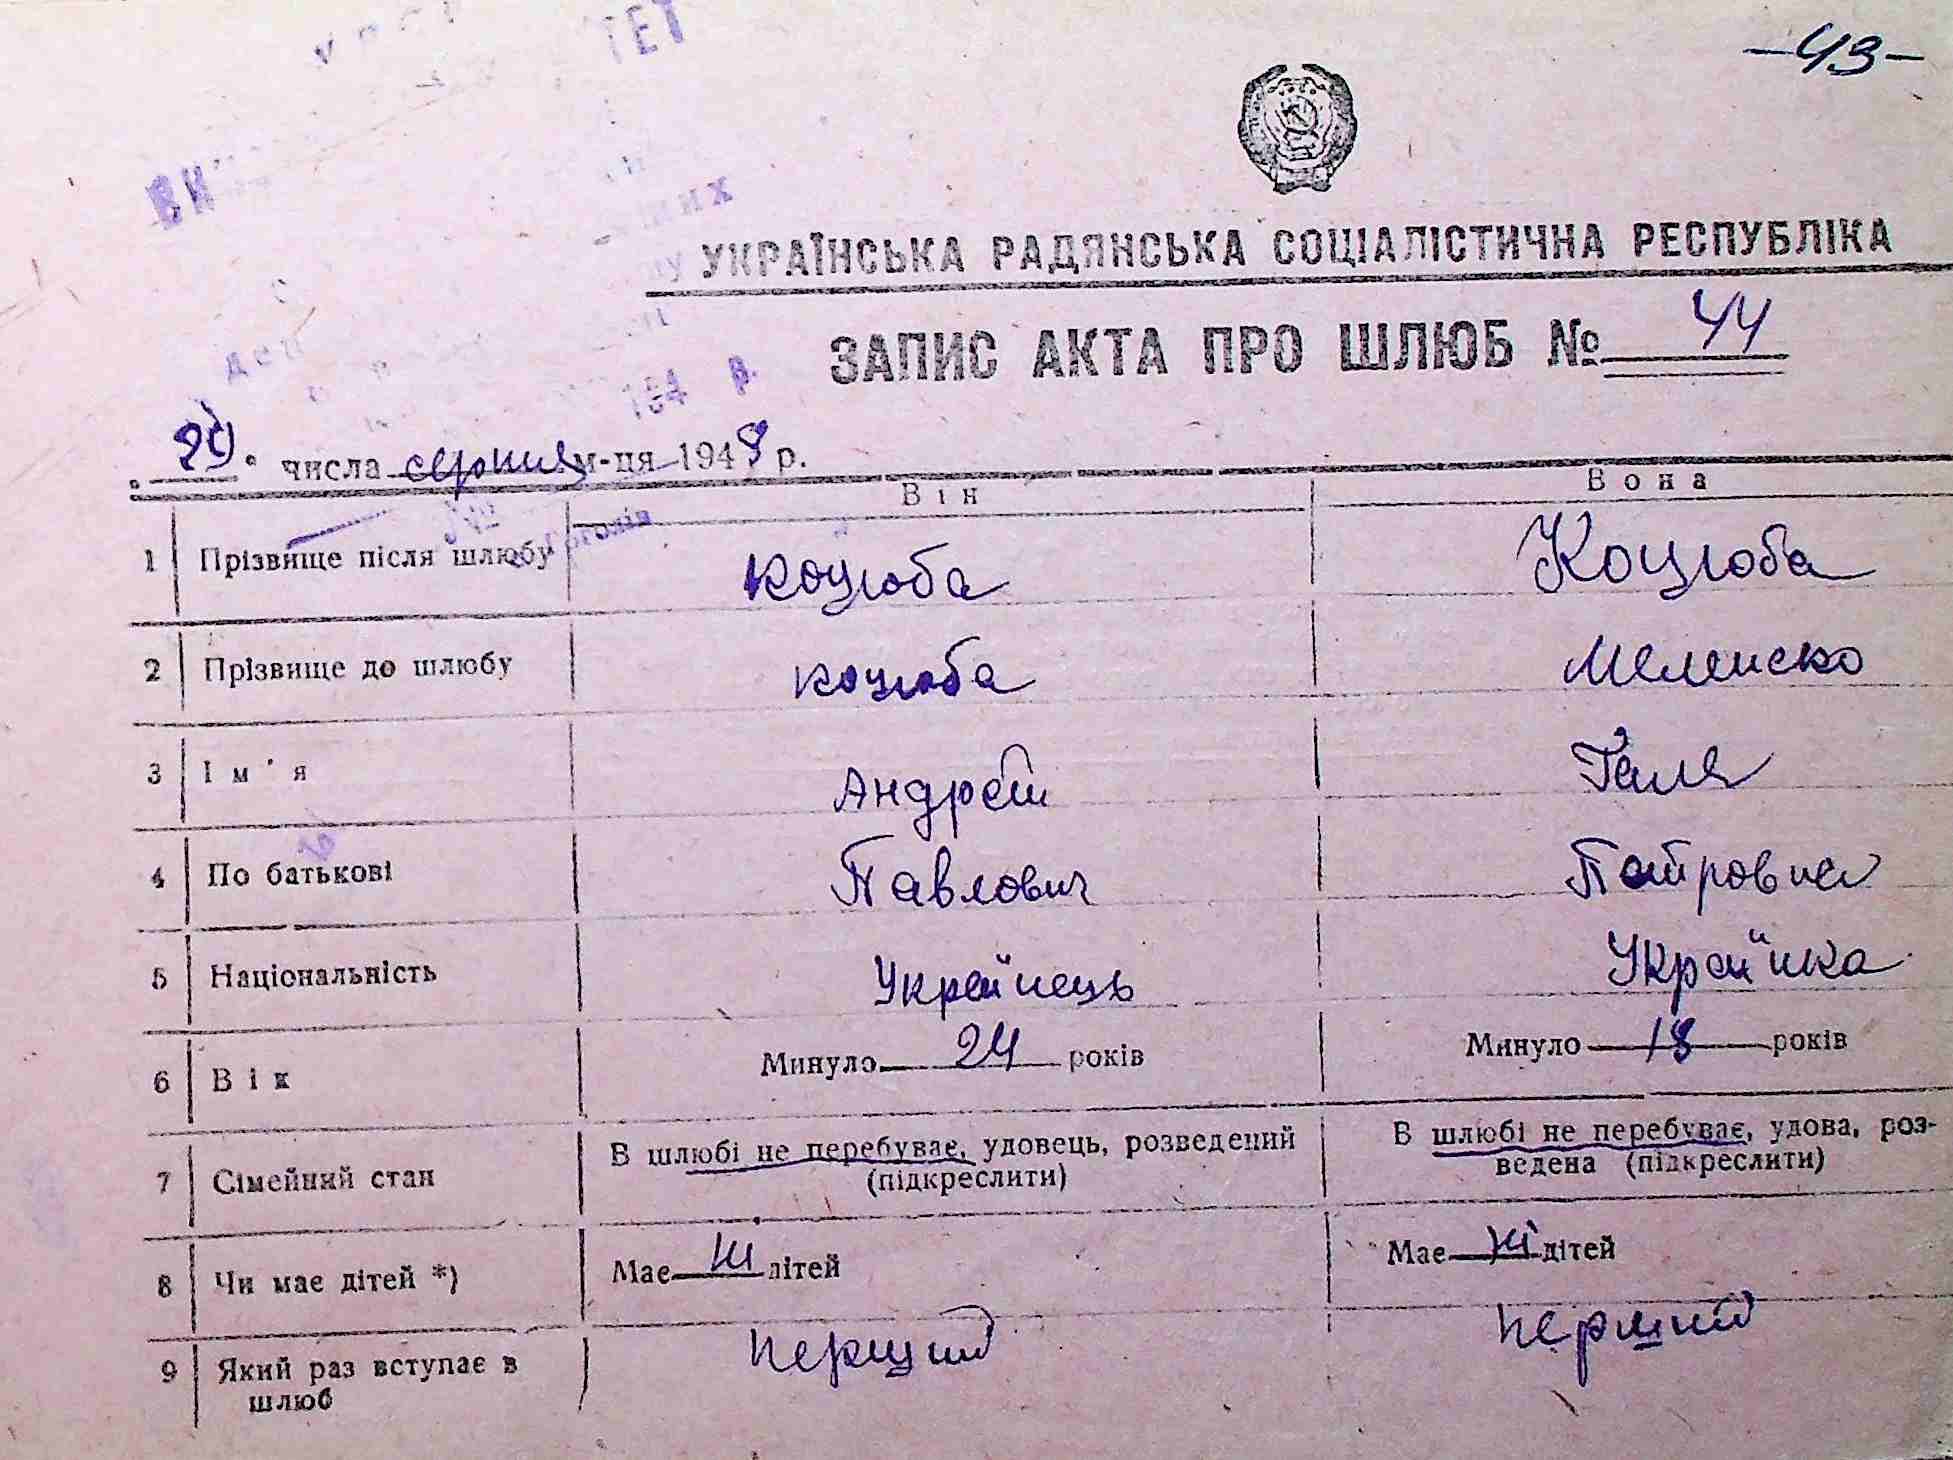 -43-
УКРАЇНСЬКА РАДЯНСЬКА СОЦІАЛІСТИЧНА РЕСПУБЛІКА
ЗАПИС АКТА ПРО ШЛЮБ № 44
числа серпня м-ця 1948 р.
Він Вона
1 Прізвище після шлюбу Коцюба Коцюба
2 Прізвище до шлюбу Коцюба
3 Ім'я Андрей Галя
4 По батькові Павлович Петровна
5 Національність Українець Українка
6 Вік Минуло 24 років Минуло 18 років
7 Сімейний стан В шлюбі не перебуває, удовець, розведений (підкреслити) В шлюбі не перебуває, удова, роз-
ведена (підкреслити)
8 Чи має дітей *) Має ні дітей Має ні дітей
9 Який раз вступає в перший перший
шлюб